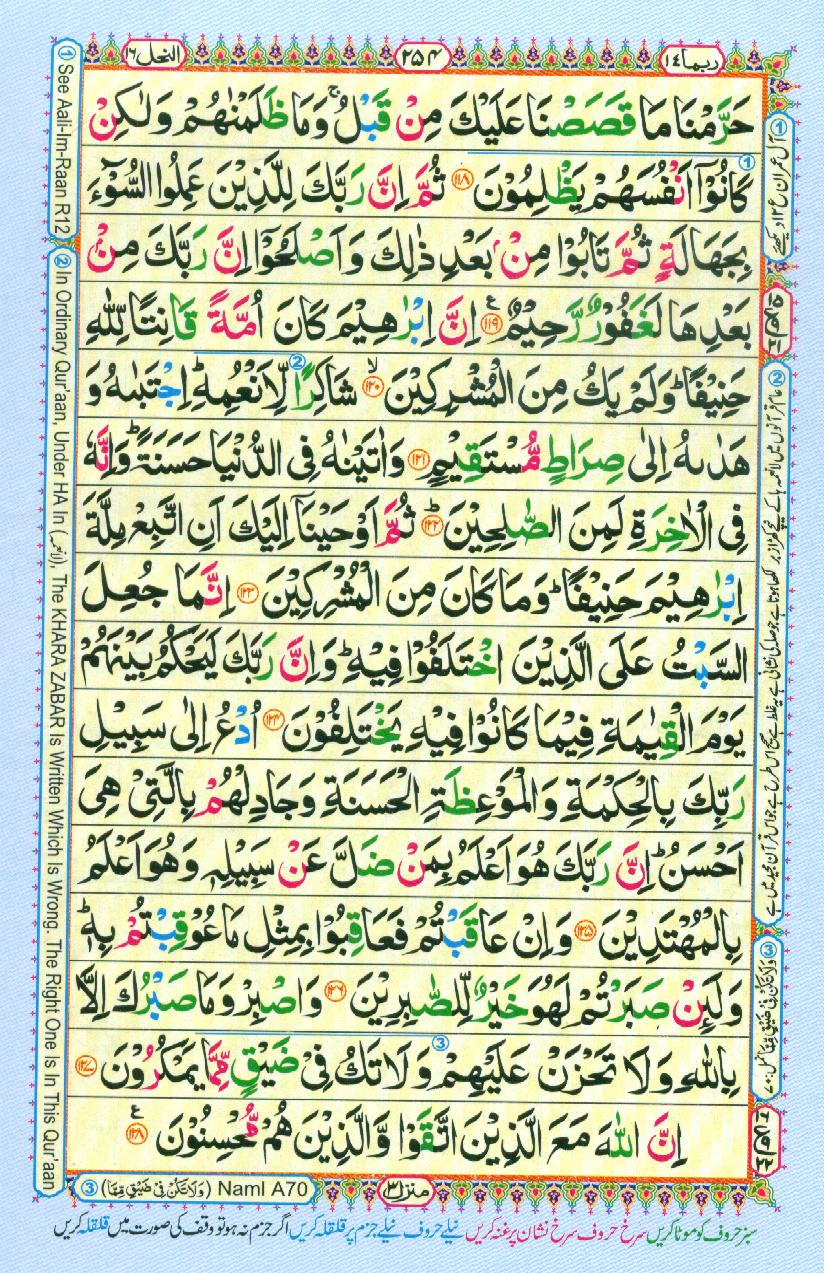 ربما ١٤
٢٥٤
النحل ١٦
حَرَّمْنَا مَا قَصَصْنَا عَلَيْكَ مِنْ قَبْلُ ۚ وَمَا ظَلَمْنٰهُمْ وَلٰكِنْ
كَانُوْۤا اَنْفُسَهُمْ يَظْلِمُوْنَ ﴿١١٨﴾ ثُمَّ اِنَّ رَبَّكَ لِلَّذِيْنَ عَمِلُوا السُّوْٓءَ
بِجَهَالَةٍ ثُمَّ تَابُوْا مِنْۢ بَعْدِ ذٰلِكَ وَاَصْلَحُوْۤا اِنَّ رَبَّكَ مِنْۢ
بَعْدِهَا لَغَفُوْرٌ رَّحِيْمٌ ﴿١١٩﴾ اِنَّ اِبْرٰهِيْمَ كَانَ اُمَّةً قَانِتًا لِّلّٰهِ
حَنِيْفًا ؕ وَلَمْ يَكُ مِنَ الْمُشْرِكِيْنَ ﴿١٢٠﴾ شَاكِرًا لِّاَنْعُمِهٖ ؕ اِجْتَبٰىهُ وَ
هَدٰىهُ اِلٰى صِرَاطٍ مُّسْتَقِيْمٍ ﴿١٢١﴾ وَاٰتَيْنٰهُ فِى الدُّنْيَا حَسَنَةً ؕ وَاِنَّهٗ
فِى الْاٰخِرَةِ لَمِنَ الصّٰلِحِيْنَ ﴿١٢٢﴾ ثُمَّ اَوْحَيْنَاۤ اِلَيْكَ اَنِ اتَّبِعْ مِلَّةَ
اِبْرٰهِيْمَ حَنِيْفًا ؕ وَمَا كَانَ مِنَ الْمُشْرِكِيْنَ ﴿١٢٣﴾ اِنَّمَا جُعِلَ
السَّبْتُ عَلَى الَّذِيْنَ اخْتَلَفُوْا فِيْهِ ؕ وَاِنَّ رَبَّكَ لَيَحْكُمُ بَيْنَهُمْ
يَوْمَ الْقِيٰمَةِ فِيْمَا كَانُوْا فِيْهِ يَخْتَلِفُوْنَ ﴿١٢٤﴾ اُدْعُ اِلٰى سَبِيْلِ
رَبِّكَ بِالْحِكْمَةِ وَالْمَوْعِظَةِ الْحَسَنَةِ وَجَادِلْهُمْ بِالَّتِىْ هِىَ
اَحْسَنُ ؕ اِنَّ رَبَّكَ هُوَ اَعْلَمُ بِمَنْ ضَلَّ عَنْ سَبِيْلِهٖ وَهُوَ اَعْلَمُ
بِالْمُهْتَدِيْنَ ﴿١٢٥﴾ وَاِنْ عَاقَبْتُمْ فَعَاقِبُوْا بِمِثْلِ مَا عُوْقِبْتُمْ بِهٖ ؕ
وَلَئِنْ صَبَرْتُمْ لَهُوَ خَيْرٌ لِّلصّٰبِرِيْنَ ﴿١٢٦﴾ وَاصْبِرْ وَمَا صَبْرُكَ اِلَّا
بِاللّٰهِ وَلَا تَحْزَنْ عَلَيْهِمْ وَلَا تَكُ فِىْ ضَيْقٍ مِّمَّا يَمْكُرُوْنَ ﴿١٢٧﴾
اِنَّ اللّٰهَ مَعَ الَّذِيْنَ اتَّقَوْا وَّالَّذِيْنَ هُمْ مُّحْسِنُوْنَ ﴿١٢٨﴾
① آل عمران ع ١٢ دیکھئے
① See Aali-Im-Raan R12
② In Ordinary Qur'aan, Under HA In (لانعمه), The KHARA ZABAR Is Written Which Is Wrong. The Right One Is In This Qur'aan
منزل ٣
③ (وَلَا تَكُنْ فِىْ ضَيْقٍ مِّمَّا) Naml A70
سبز حروف کو موٹا کریں سرخ حروف سرخ نشان پر غنہ کریں نیلے حروف نیلے جزم پر قلقلہ کریں اگر جزم نہ ہو تو وقف کی صورت میں قلقلہ کریں